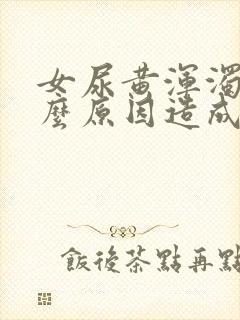 女尿黄渾濁
麼原因造成
飯後茶點再點